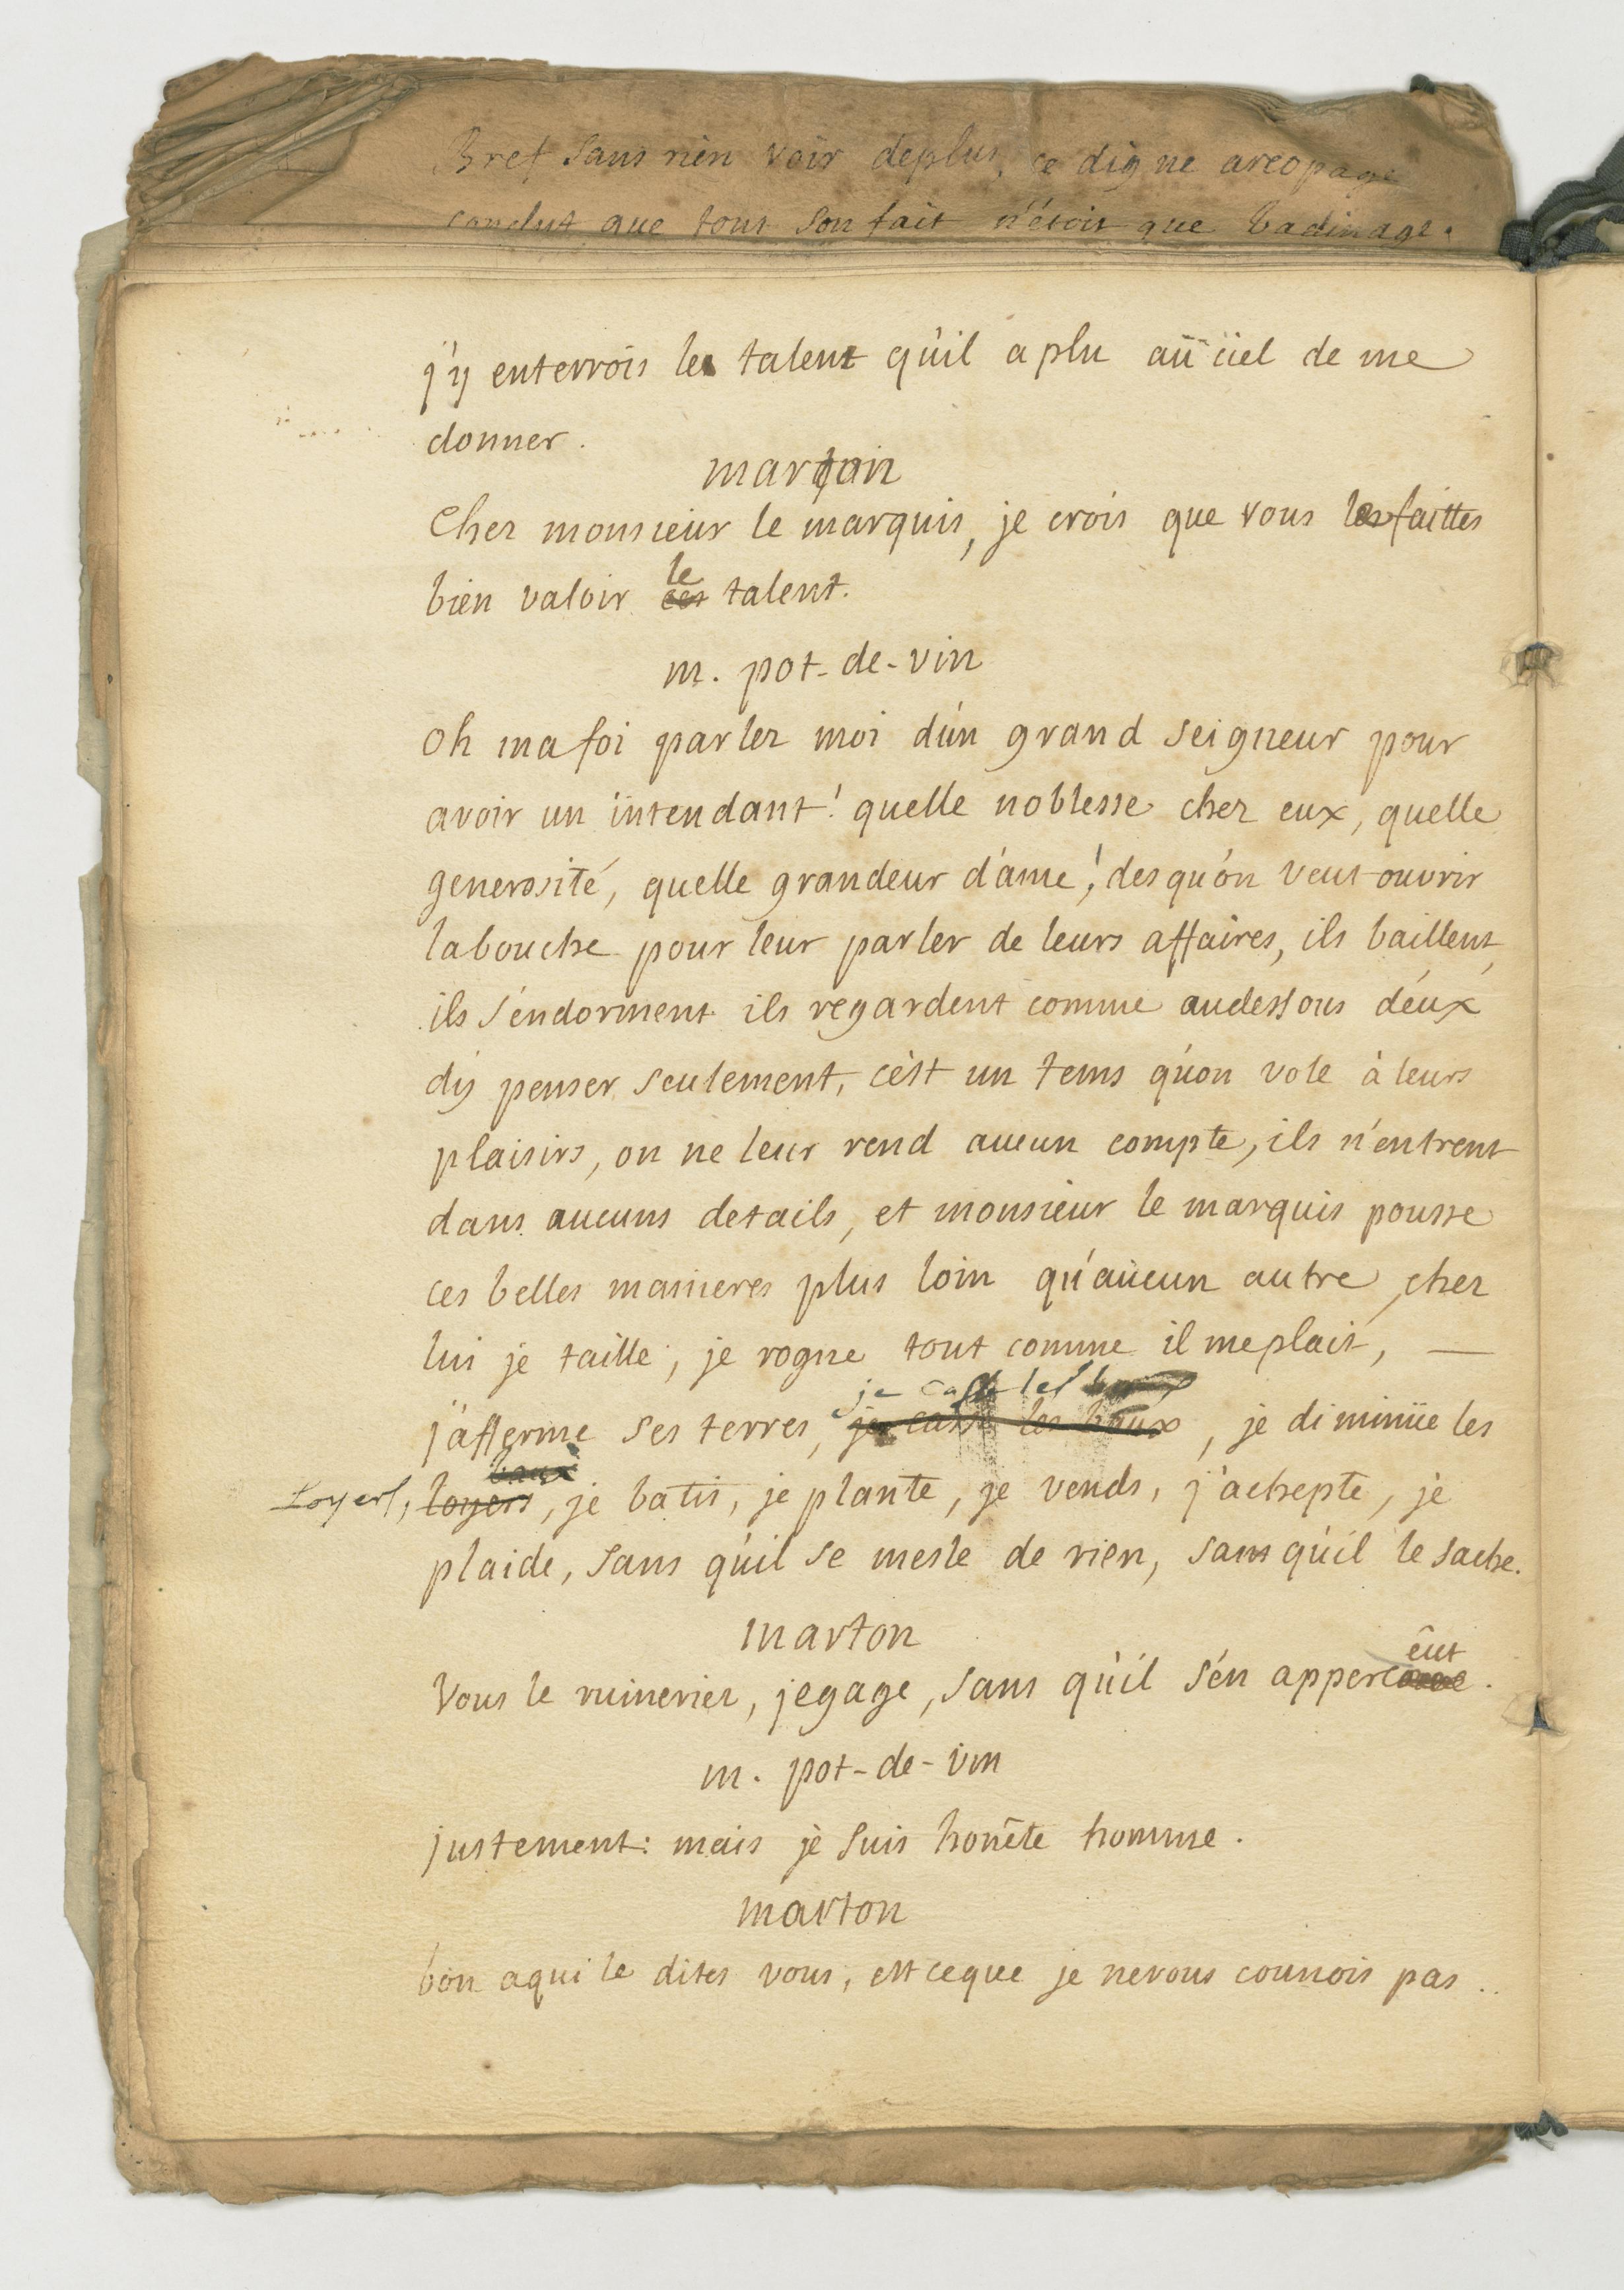 Bref sans rien voir deplus, ce digne areopage
conclut que tout son fait n'étoit que badinage.
j'y enterrois le talent qu'il a plu au ciel de me
donner.
marton
Chez monsieur le marquis, je crois que vous le faittes
bien valoir le talent.
m. pot-de-vin
oh ma foi parlez moi d'un grand seigneur pour
avoir un intendant! quelle noblesse chez eux, quelle
generosité, quelle grandeur d'ame! des qu'on veut ouvrir
labouche pour leur parler de leurs affaires, ils baillent,
ils s'endorment ils regardent comme audessous d'eux
d'y penser seulement, c'est un tems qu'on vole à leurs
plaisirs, on ne leur rend aucun compte, ils n'entrent
dans aucuns details, et monsieur le marquis pousse
ces belles manieres plus loin qu'aucun autre, chez
lui je taille, je rogne tout comme il meplait, —
je casse les baux
j'afferme ses terres, je casse les baux, je diminüe les
baux
Loyers, loyers, je batis, je plante, je vends, j'achepte, je
plaide, sans qu'il se mesle de rien, sans qu'il le sache.
marton
eut
Vous le ruineriez, jegage, sans qu'il s'en apperc.
m. pot-de-vin
justement: mais je suis honête homme.
marton
bon aqui le dites vous, est ceque je nevous connois pas.